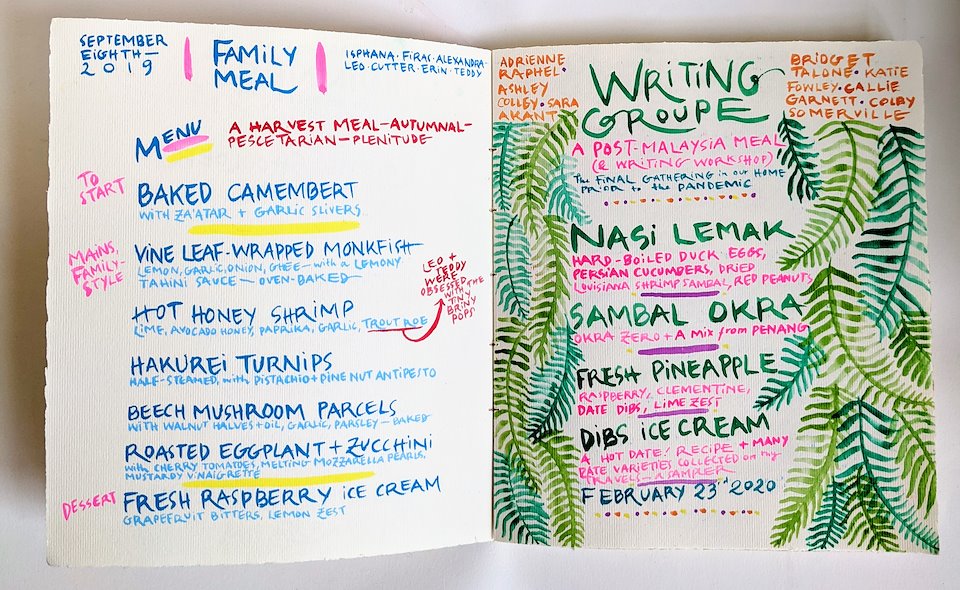 SEPTEMBER
EIGHTH—
2019
FAMILY
MEAL
ISPHANA · FIRAS · ALEXANDRA
LEO · CUTTER · ERIN · TEDDY
MENU
A HARVEST MEAL—AUTUMNAL—
PESCETARIAN—PLENITUDE
TO
START
BAKED CAMEMBERT
WITH ZA'ATAR + GARLIC SLIVERS
MAINS,
FAMILY-
STYLE
VINE LEAF-WRAPPED MONKFISH
LEMON, GARLIC, ONION, GHEE—with a LEMONY
TAHINI SAUCE—OVEN-BAKED
HOT HONEY SHRIMP
LIME, AVOCADO HONEY, PAPRIKA, GARLIC, TROUT ROE
LEO +
TEDDY
WERE
OBSESSED
with THE
TINY
BRINY
POPS
HAKUREI TURNIPS
HALF-STEAMED, with PISTACHIO + PINE NUT ANTIPESTO
BEECH MUSHROOM PARCELS
WITH WALNUT HALVES + OIL, GARLIC, PARSLEY—BAKED
ROASTED EGGPLANT + ZUCCHINI
with CHERRY TOMATOES, MELTING MOZZARELLA PEARLS,
MUSTARDY VINAIGRETTE
DESSERT
FRESH RASPBERRY ICE CREAM
GRAPEFRUIT BITTERS, LEMON ZEST
ADRIENNE
RAPHEL ·
ASHLEY
COLLEY · SARA
AKANT
WRITING
GROUPE
BRIDGET
TALONE · KATIE
FOWLEY · CALLIE
GARNETT · COLBY
SOMERVILLE
A POST-MALAYSIA MEAL
(& WRITING WORKSHOP)
The FINAL GATHERING in OUR HOME
PRIOR to the PANDEMIC
NASI LEMAK
HARD-BOILED DUCK EGGS,
PERSIAN CUCUMBERS, DRIED
LOUISIANA SHRIMP SAMBAL, RED PEANUTS
SAMBAL OKRA
OKRA ZERO + A MIX from PENANG
FRESH PINEAPPLE
RASPBERRY, CLEMENTINE,
DATE DIBS, LIME ZEST
DIBS ICE CREAM
A HOT DATE! RECIPE + MANY
DATE VARIETIES COLLECTED on my
TRAVELS—A SAMPLER
FEBRUARY 23rd 2020